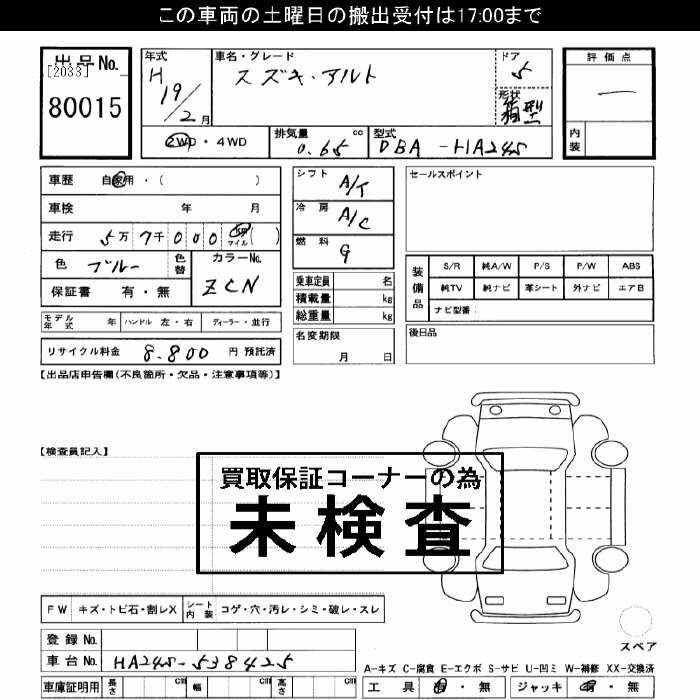 この車両の土曜日の搬出受付は17:00まで
出品No.
[2033]
80015
年式
H 19/2月
車名・グレード
スズキ・アルト
ドア
5
形状
箱型
評価点
一
内装
2WD・4WD
排気量 0.65 cc
型式 DBA-HA24S
車歴 自家用・( )
車検 年 月
走行 5万7千000 Km マイル ( )
色 ブルー 色替
カラーNo. ZCN
保証書 有・無
モデル年式 年 ハンドル 左・右 ディーラー・並行
リサイクル料金 8.800 円 預託済
シフト A/T
冷房 A/C
燃料 G
乗車定員 名
積載量 kg
総重量 kg
名変期限
月 日
セールスポイント
装備品
S/R 純A/W P/S P/W ABS
純TV 純ナビ 革シート 外ナビ エアB
ナビ型番:
後日品
【出品店申告欄(不良箇所・欠品・注意事項等)】
【検査員記入】
買取保証コーナーの為
未検査
FW キズ・トビ石・割レX シート内装 コゲ・穴・汚レ・シミ・破レ・スレ
登録No.
車台No. HA24S-538425
車庫証明用 長さ cm 幅 cm 高さ cm
スペア
A-キズ C-腐食 E-エクボ S-サビ U-凹ミ W-補修 XX-交換済
工具 有・無 ジャッキ 有・無